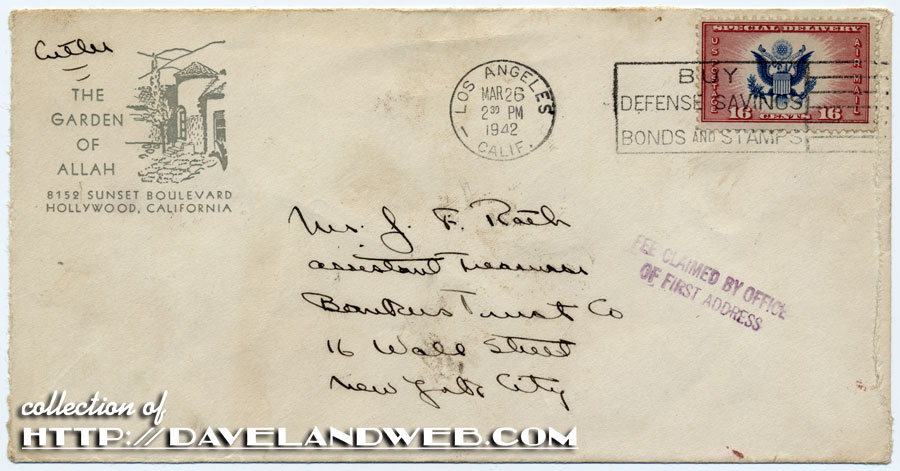 Cutler
THE
GARDEN
OF
ALLAH
8152 SUNSET BOULEVARD
HOLLYWOOD, CALIFORNIA
LOS ANGELES
MAR 26
2 30 PM
1942
CALIF.
BUY
DEFENSE SAVINGS
BONDS AND STAMPS
SPECIAL DELIVERY
US POSTAGE
AIR MAIL
16 CENTS 16
Mr. J. F. Raeth
assistant Treasurer
Bankers Trust Co
16 Wall Street
New York City
FEE CLAIMED BY OFFICE
OF FIRST ADDRESS
collection of
HTTP://DAVELANDWEB.COM